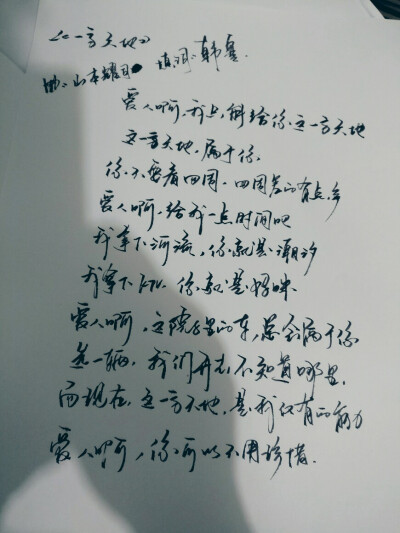 《一方天地》
曲：山本耀司 填词：韩寒
爱人啊，我上缴给你这一方天地
这一方天地，属于你
你不要看四周，四周名的有点多
爱人啊，给我一点时间吧
我拿下河流，你就是潮汐
我拿下 你就是
爱人啊，这院里的车，总会属于你
这一辆，我们开去不知道哪里，
而现在，这一方天地，是我仅有的能力
爱人啊，你可以不用珍惜.